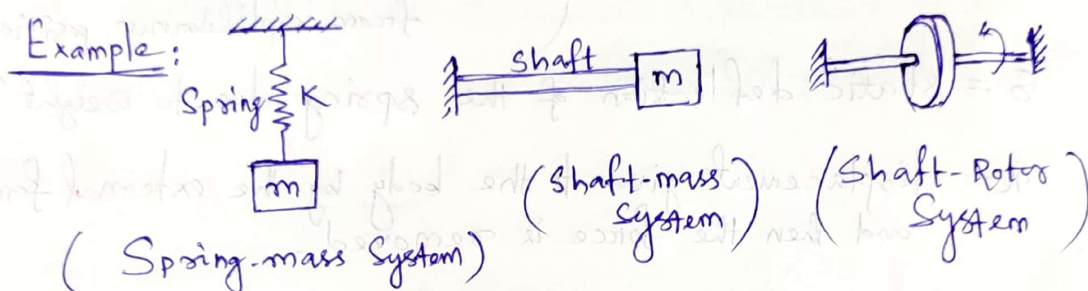 Example:
Spring K
m
(Spring-mass System)
Shaft
m
(Shaft-mass
System)
(Shaft-Rotor
System)